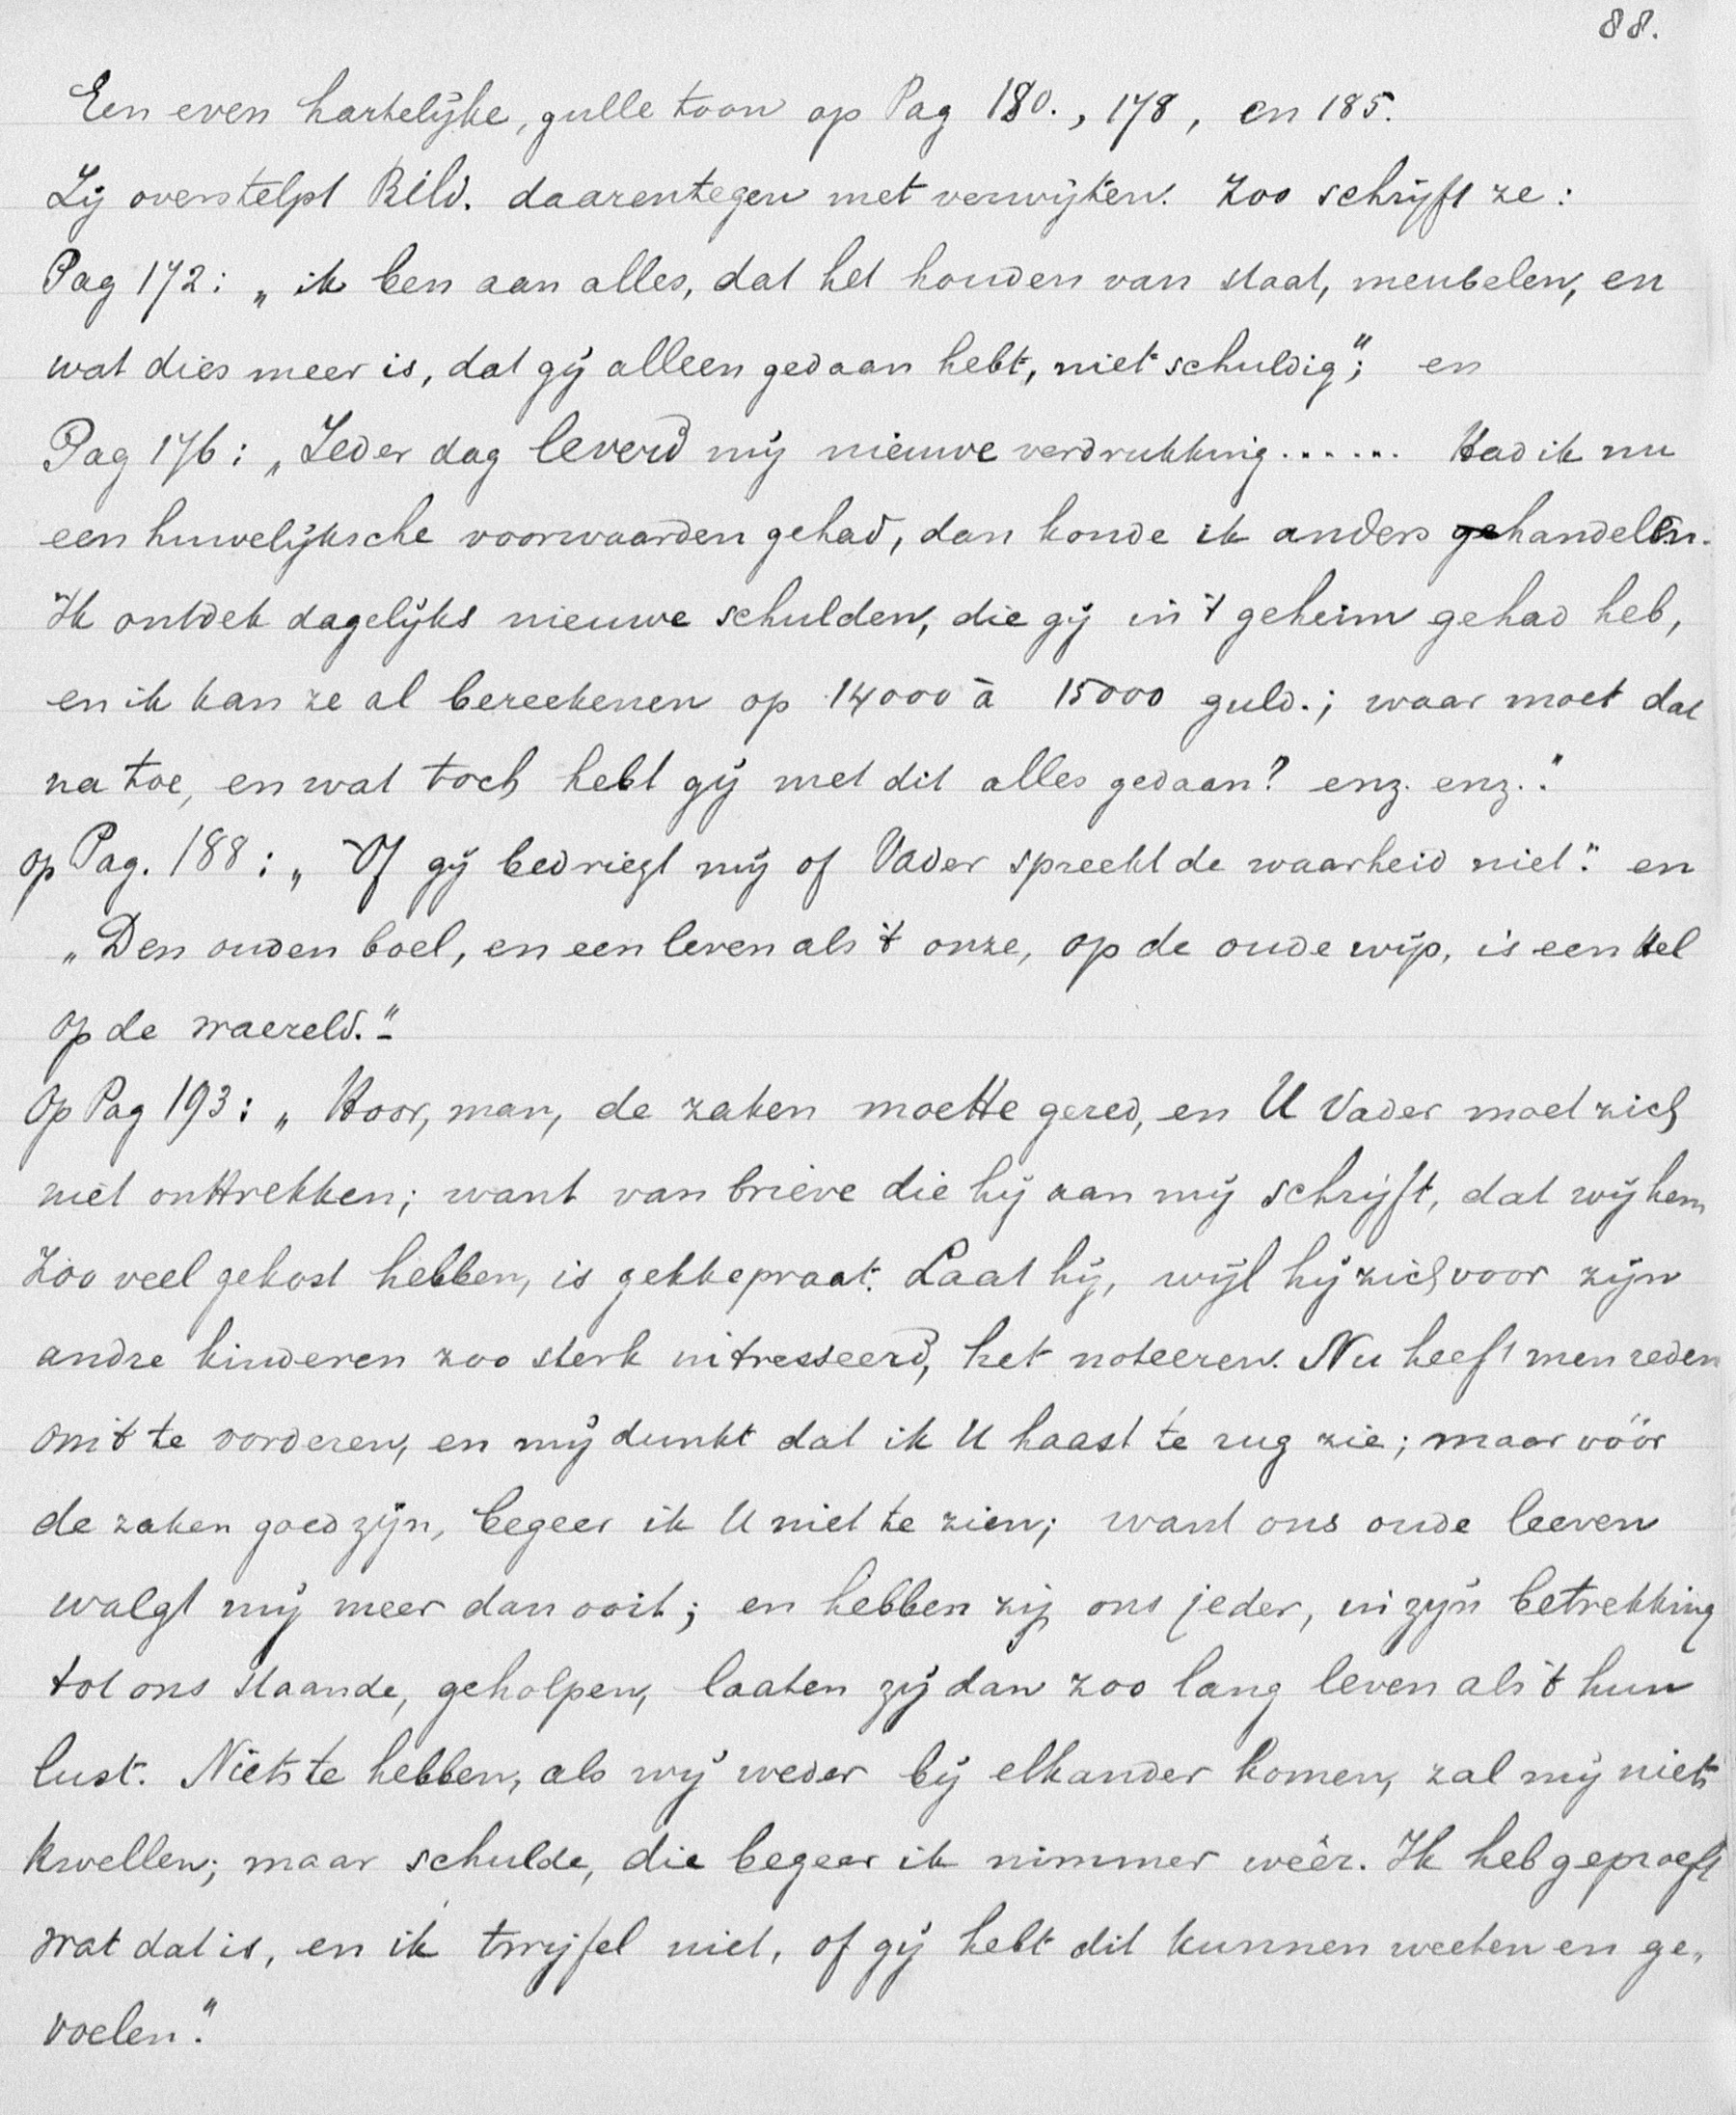 88.
Een even hartelijke, gulle toon op Pag 180., 178, en 185.
Zij overstelpt Bild. daarentegen met verwijten. Zoo schrijft ze:
Pag 172: „ ik ben aan alles, dat het houden van staat, meubelen, en
wat dies meer is, dat gij alleen gedaan hebt, niet schuldig"; en
Pag 176: „Ieder dag leverd mij nieuwe verdrukking...... Had ik nu
een huwelijksche voorwaarden gehad, dan konde ik anders handelen.
Ik ontdek dagelijks nieuwe schulden, die gij in 't geheim gehad heb,
en ik kan ze al bereekenen op 14000 à 15000 guld.; waar moet dat
na toe, en wat toch hebt gij met dit alles gedaan? enz. enz.."
op Pag. 188: „ Of gij bedriegt mij of Vader spreekt de waarheid niet." en
„Den ouden boel, en een leven als 't onze, op de oude wijs, is een Hel
op de waereld."-
Op Pag 193: „ Hoor, man, de zaken moette gered, en U Vader moet zich
niet onttrekken; want van brieve die hij aan mij schrijft, dat wij hem
zoo veel gekost hebben, is gekkepraat. Laat hij, wijl hij zich voor zijn
andre kinderen zoo sterk intresseerd, het noteeren. Nu heeft men reden
om 't te vorderen, en mij dunkt dat ik U haast te rug zie; maar vóór
de zaken goed zijn, begeer ik U niet te zien; want ons oude leeven
walgt mij meer dan ooit; en hebben zij ons jeder, in zijn betrekking
tot ons staande, geholpen, laaten zij dan zoo lang leven als 't hun
lust. Niets te hebben, als wij weder bij elkander komen, zal mij niets
kwellen; maar schulde, die begeer ik nimmer wêêr. Ik heb geproeft
wat dat is, en ik twijfel niet, of gij hebt dit kunnen weeten en ge„
voelen."